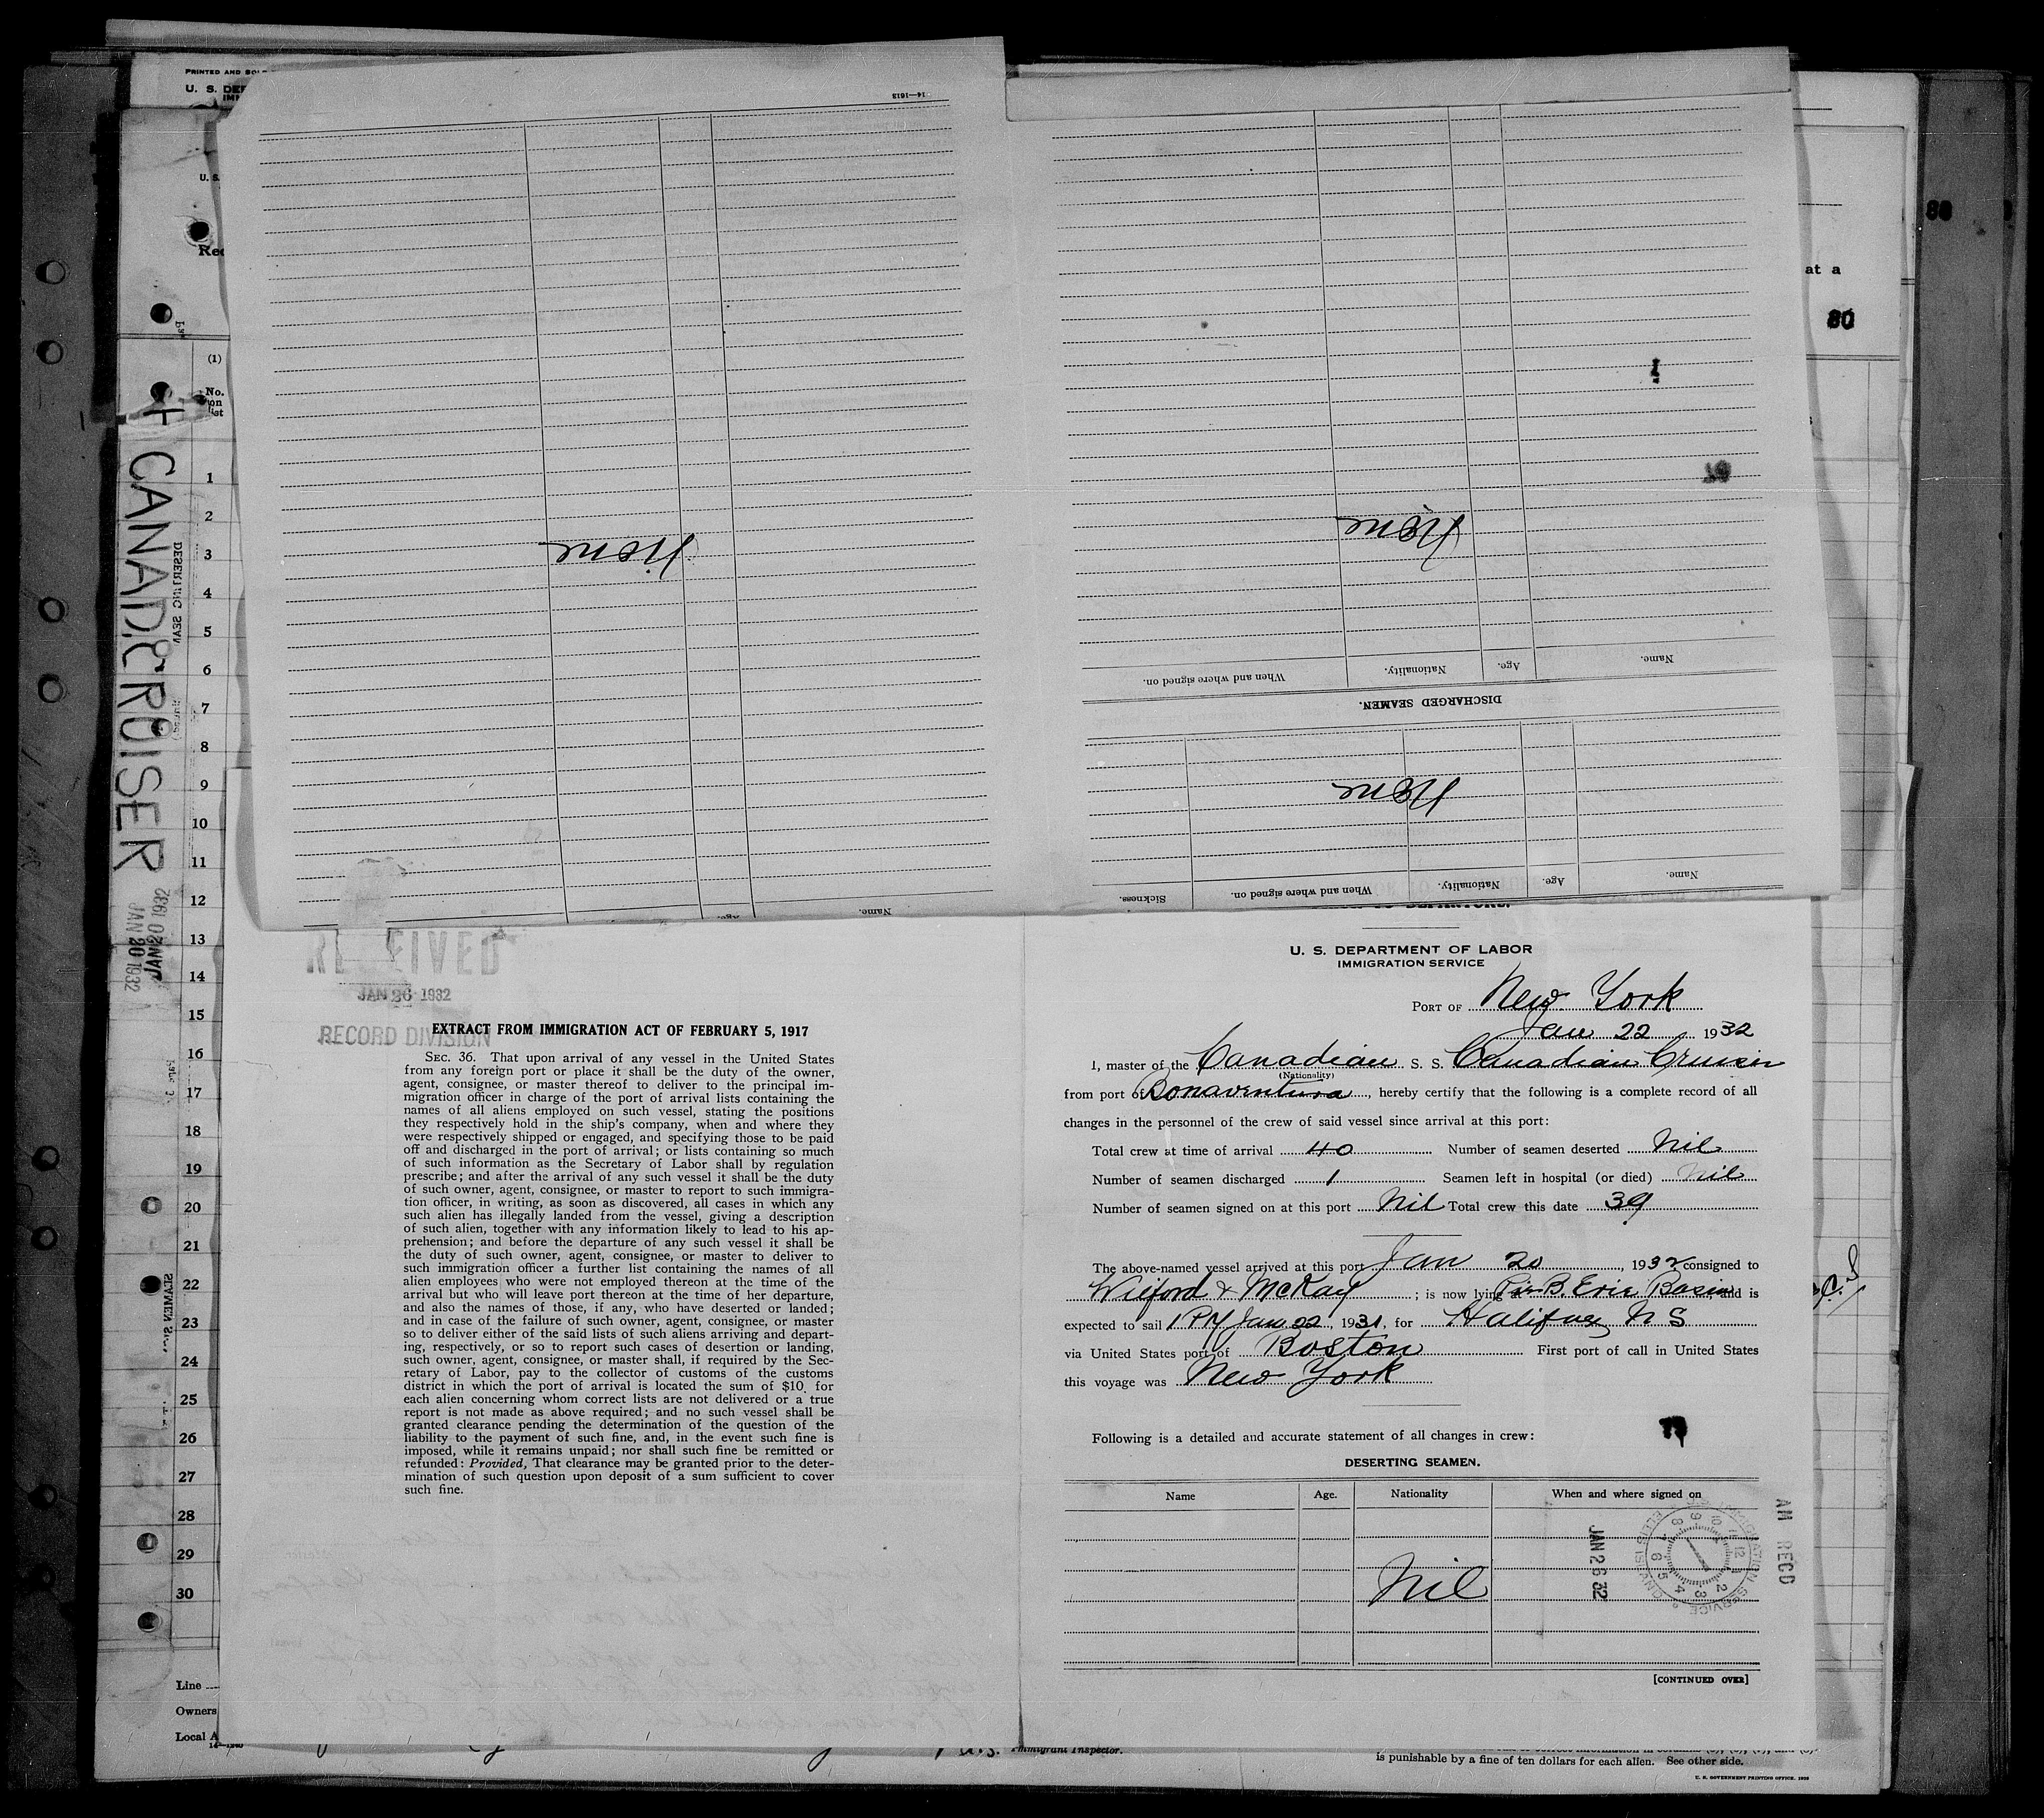 PRINTED AND SOL
U. S. DEP
14—1613
U. S.
Rec
at a
80
80
(1)
No.
on
list
CANAD. CRUISER
DESERTING SEAM
JAN 20 1932
JAN 20 1932
1
2
3
4
5
6
7
8
9
10
11
12
13
14
15
16
17
18
19
20
21
22
23
24
25
26
27
28
29
30
Line
Owners
Local A
None
Name.
Age.
None
Name.
Age.
Nationality.
When and where signed on.
DISCHARGED SEAMEN.
None
Name.
Age.
Nationality.
When and where signed on.
Sickness.
RECEIVED
JAN 26 1932
RECORD DIVISION
EXTRACT FROM IMMIGRATION ACT OF FEBRUARY 5, 1917
SEC. 36. That upon arrival of any vessel in the United States
from any foreign port or place it shall be the duty of the owner,
agent, consignee, or master thereof to deliver to the principal im-
migration officer in charge of the port of arrival lists containing the
names of all aliens employed on such vessel, stating the positions
they respectively hold in the ship's company, when and where they
were respectively shipped or engaged, and specifying those to be paid
off and discharged in the port of arrival; or lists containing so much
of such information as the Secretary of Labor shall by regulation
prescribe; and after the arrival of any such vessel it shall be the duty
of such owner, agent, consignee, or master to report to such immigra-
tion officer, in writing, as soon as discovered, all cases in which any
such alien has illegally landed from the vessel, giving a description
of such alien, together with any information likely to lead to his ap-
prehension; and before the departure of any such vessel it shall be
the duty of such owner, agent, consignee, or master to deliver to
such immigration officer a further list containing the names of all
alien employees who were not employed thereon at the time of the
arrival but who will leave port thereon at the time of her departure,
and also the names of those, if any, who have deserted or landed;
and in case of the failure of such owner, agent, consignee, or master
so to deliver either of the said lists of such aliens arriving and depart-
ing, respectively, or so to report such cases of desertion or landing,
such owner, agent, consignee, or master shall, if required by the Sec-
retary of Labor, pay to the collector of customs of the customs
district in which the port of arrival is located the sum of $10 for
each alien concerning whom correct lists are not delivered or a true
report is not made as above required; and no such vessel shall be
granted clearance pending the determination of the question of the
liability to the payment of such fine, and, in the event such fine is
imposed, while it remains unpaid; nor shall such fine be remitted or
refunded: Provided, That clearance may be granted prior to the deter-
mination of such question upon deposit of a sum sufficient to cover
such fine.
U. S. DEPARTMENT OF LABOR
IMMIGRATION SERVICE
PORT OF New York
Jan 22 1932
I, master of the Canadian S. S. Canadian Cruiser
(Nationality)
from port of Bonaventura, hereby certify that the following is a complete record of all
changes in the personnel of the crew of said vessel since arrival at this port:
Total crew at time of arrival 40 Number of seamen deserted Nil
Number of seamen discharged 1 Seamen left in hospital (or died) Nil
Number of seamen signed on at this port Nil Total crew this date 39
The above-named vessel arrived at this port Jan 20, 1932 consigned to
Wilford & McKay; is now lying Pier B. Erie Basin and is
expected to sail 1 PM Jan 22, 1931, for Halifax N S
via United States port of Boston First port of call in United States
this voyage was New York
Following is a detailed and accurate statement of all changes in crew:
DESERTING SEAMEN.
Name Age. Nationality When and where signed on
Nil
JAN 26 32
IMMIGRATION SERVICE ELLIS ISLAND
AM RECD
[CONTINUED OVER]
Immigrant Inspector.
is punishable by a fine of ten dollars for each alien. See other side.
U. S. GOVERNMENT PRINTING OFFICE